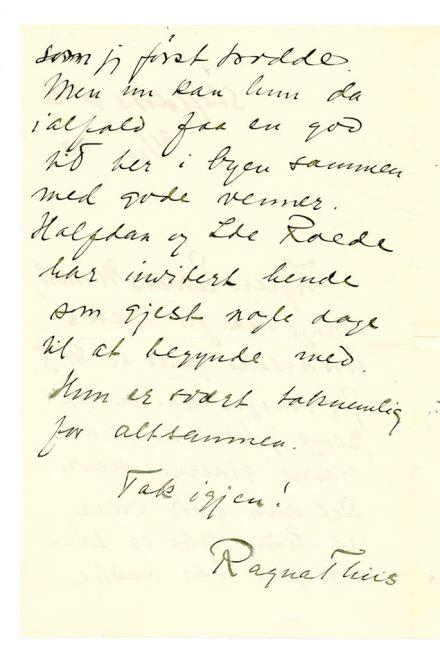 som jeg først trodde.
Men nu kan hun da
ialfald faa en god
tid her i byen sammen
med gode venner.
Halfdan og Ide Roede
har invitert hende
som gjest nogle dage
til at begynde med.
Hun er svært taknemlig
for altsammen.
Tak igjen!
Ragna Thiis